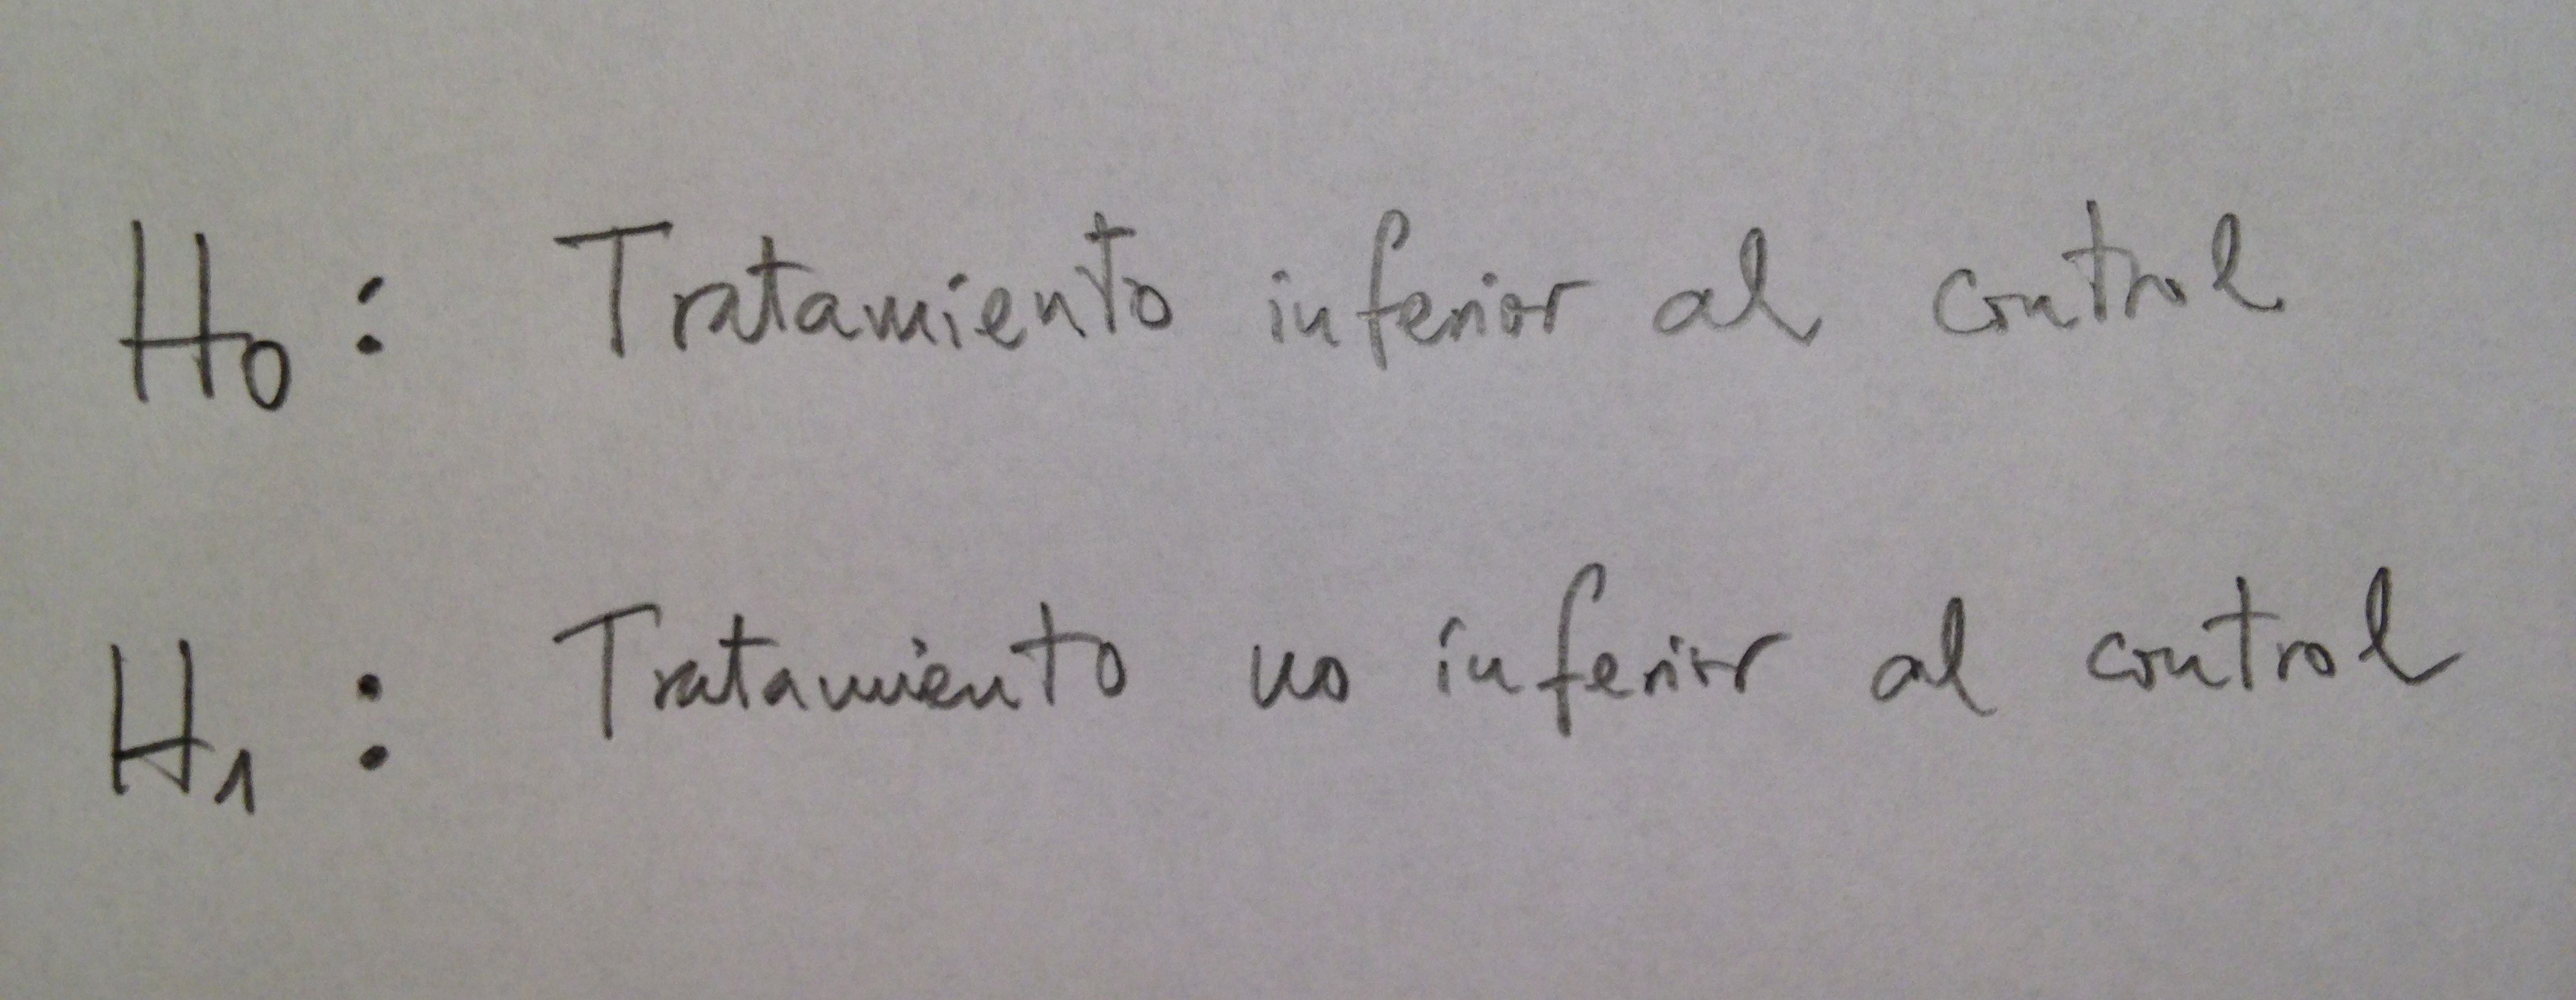 H₀: Tratamiento inferior al control
H₁: Tratamiento no inferior al control